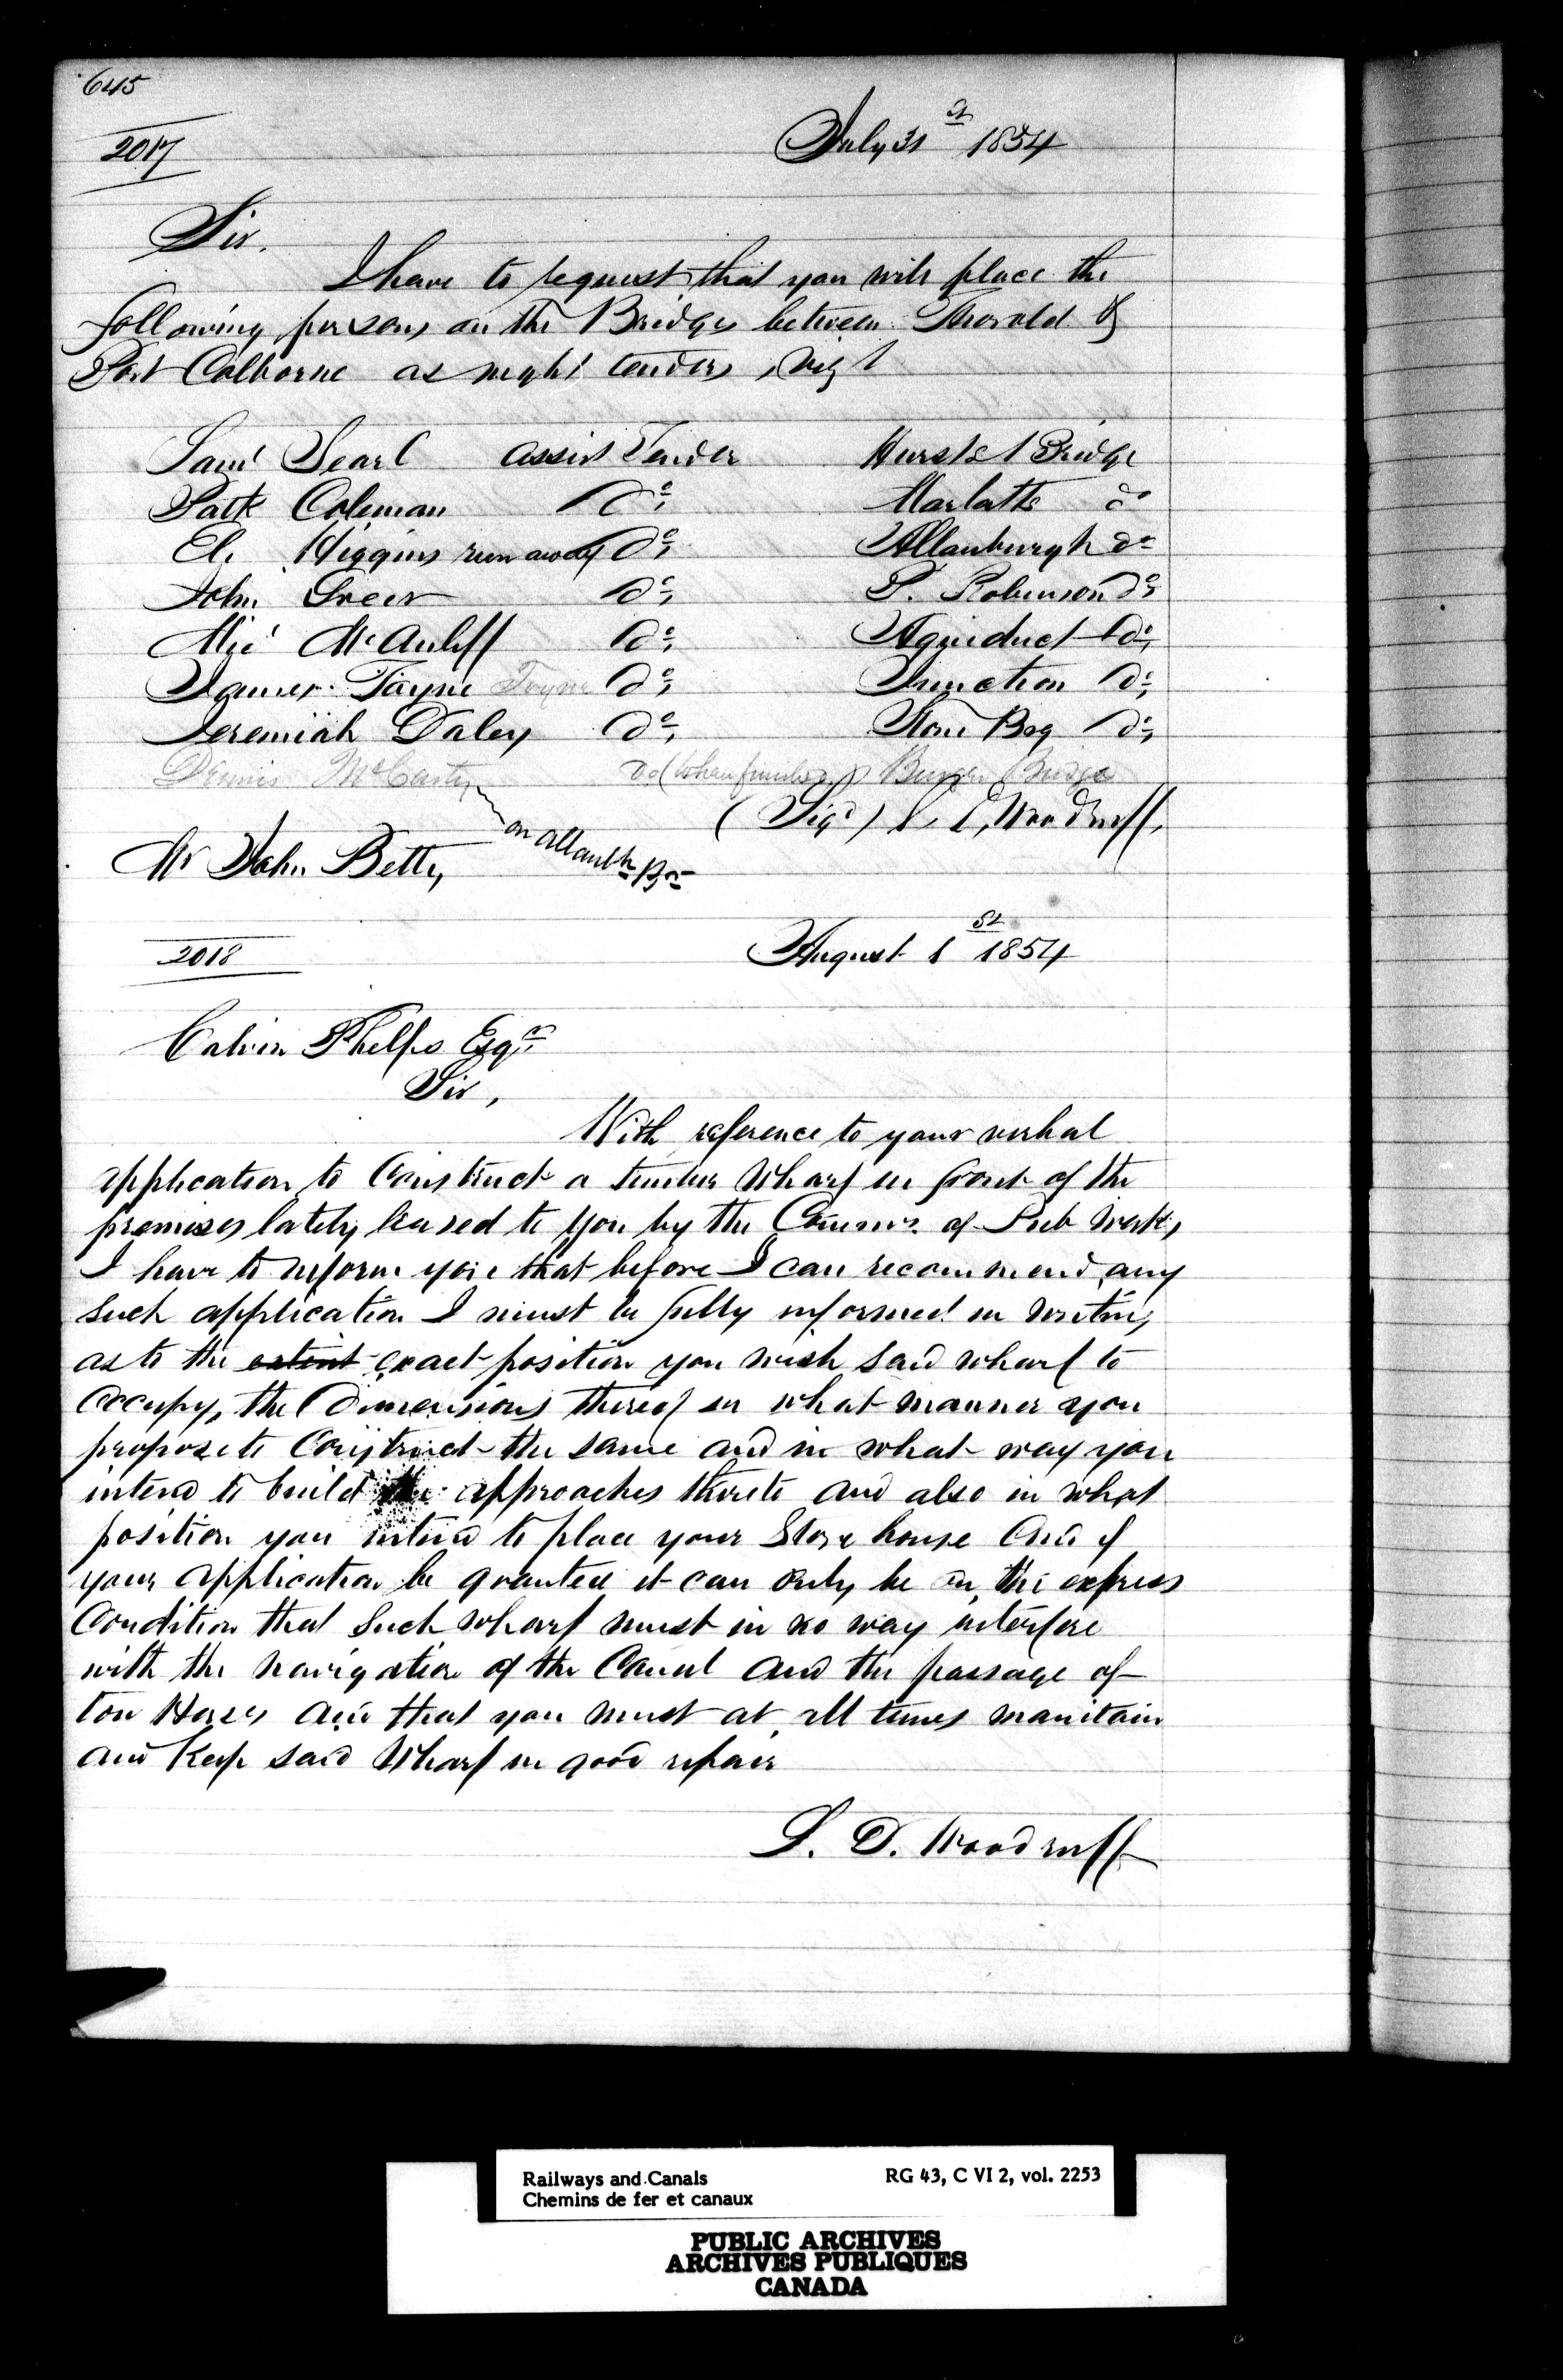 645
2017
July 31st 1854
Sir.
I have to request that you will place the
following persons on the Bridges between Thorold &
Port Colborne as night tenders, viz
Saml Searl assist Tender Hursts Bridge
Patk Coleman Do, Marlatts do
El. Higgins run away Do, Allanburgh do
John Greer Do, P. Robinson Do,
Mic McAuliff Do, Aqueduct Do,
James Tayne Toyne Do, Junction Do,
Jeremiah Daley Do, Stone Bog Do,
Dennis McCarty Do (when finished) Bridge
on Allanbh Bge
(Sigd) S. D. Woodruff,
Mr John Betty
2018
August 1st 1854
Calvin Phelps Esqr
Sir,
With reference to your verbal
application to Construct a timber Wharf in front of the
premises lately leased to you by the Commrs. of Pub Works,
I have to inform you that before I can recommend any
such application I must be fully informed in writing
as to the extent exact position you wish said wharf to
occupy, the Dimensions thereof in what manner you
propose to Construct the same and in what way you
intend to build the approaches thereto and also in what
position you intend to place your Store house And if
your application be granted it can only be on the express
Condition that Such wharf must in no way interfere
with the navigation of the Canal and the passage of
tow Horses and that you must at all times maintain
and Keep said Wharf in good repair
S. D. Woodruff
Railways and Canals
Chemins de fer et canaux
RG 43, C VI 2, vol. 2253
PUBLIC ARCHIVES
ARCHIVES PUBLIQUES
CANADA